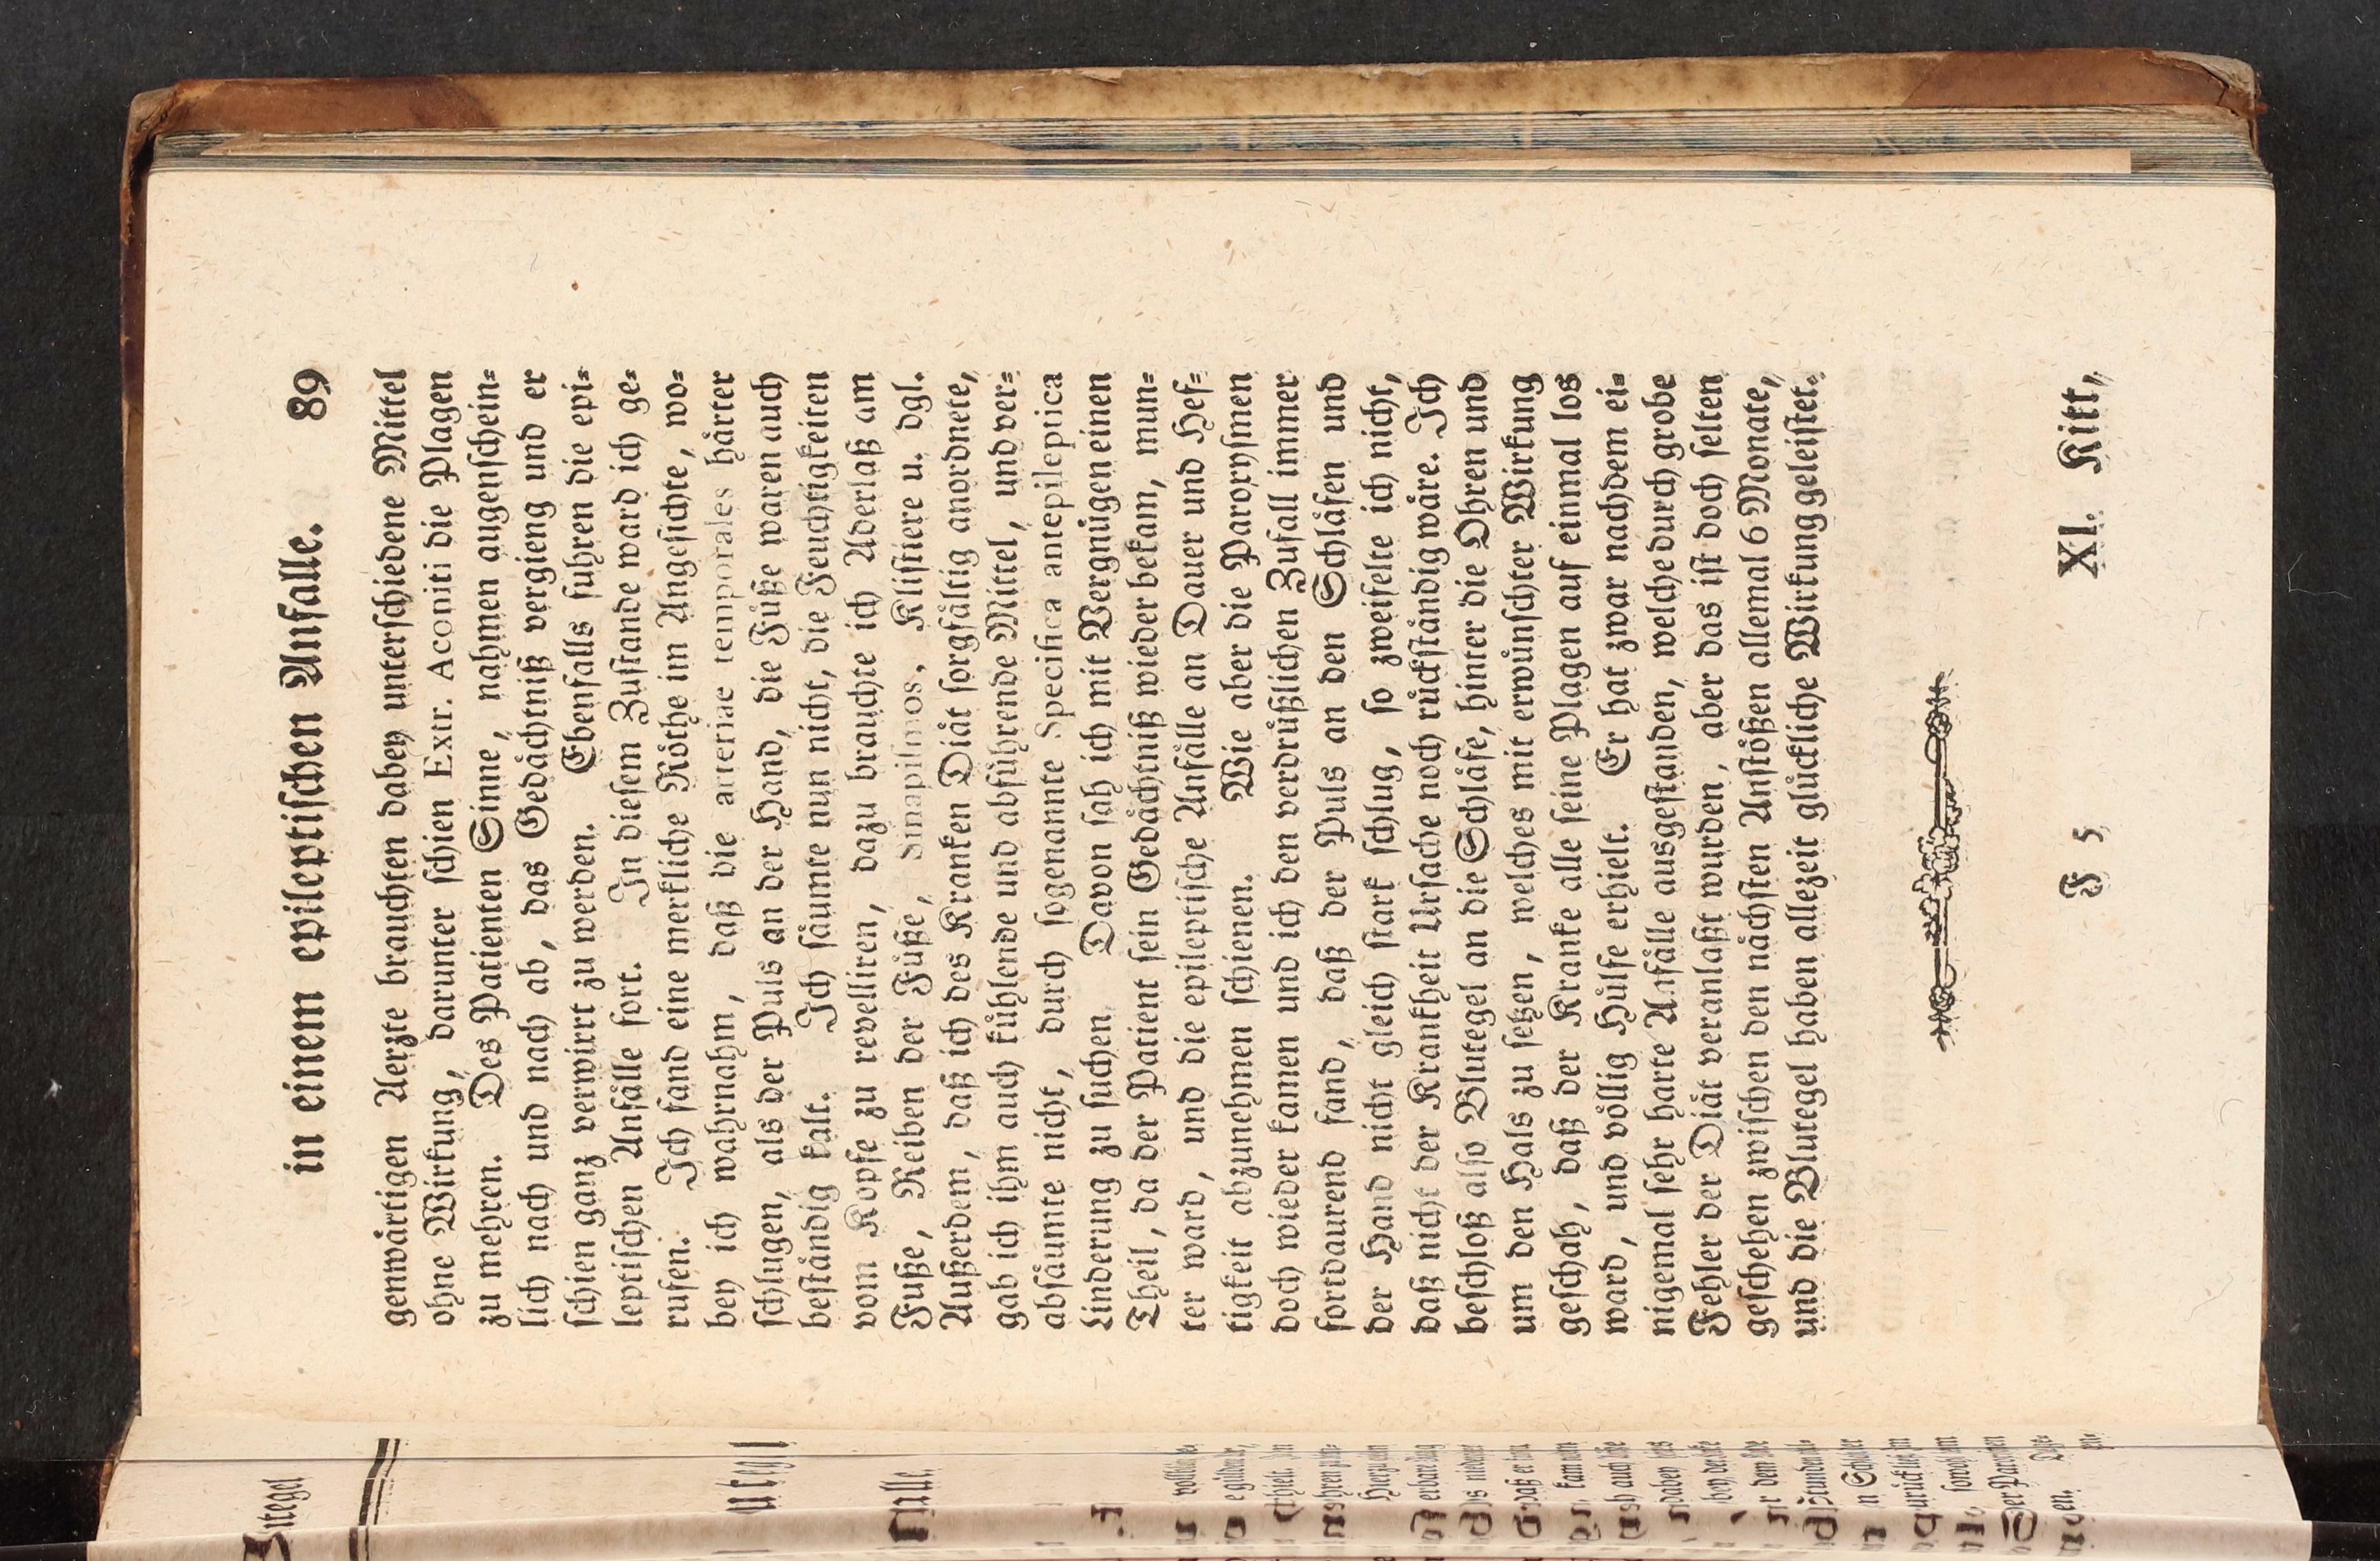 in einem epileptischen Anfalle. 89
gegenwärtigen Aerzte brauchten dabey unterschiedene Mittel
ohne Wirkung, darunter schien Extr. Aconiti die Plagen
zu mehren. Des Patienten Sinne, nahmen augenschein⸗
lich nach und nach ab, das Gedächtniß vergieng und er
schien ganz verwirrt zu werden. Ebenfalls fuhren die epi⸗
leptischen Anfälle fort. In diesem Zustande ward ich ge⸗
rufen. Ich fand eine merkliche Röthe im Angesichte, wo⸗
bey ich wahrnahm, daß die arteriae temporales härter
schlugen, als der Puls an der Hand, die Füße waren auch
beständig kalt. Ich säumte nun nicht, die Feuchtigkeiten
vom Kopfe zu revelliren, dazu brauchte ich Aderlaß am
Fuße, Reiben der Füße, Sinapismos, Klistiere u. dgl.
Außerdem, daß ich des Kranken Diät sorgfältig anordnete,
gab ich ihm auch kühlende und abführende Mittel, und ver⸗
absäumte nicht, durch sogenannte Specifica antepileptica
Linderung zu suchen. Davon sah ich mit Vergnügen einen
Theil, da der Patient sein Gedächtniß wieder bekam, mun⸗
ter ward, und die epileptische Anfälle an Dauer und Hef⸗
tigkeit abzunehmen schienen. Wie aber die Paroxysmen
doch wieder kamen und ich den verdrüßlichen Zufall immer
fortdaurend fand, daß der Puls an den Schläfen und
der Hand nicht gleich stark schlug, so zweifelte ich nicht,
daß nicht der Krankheit Ursache noch rückständig wäre. Ich
beschloß also Blutegel an die Schläfe, hinter die Ohren und
um den Hals zu setzen, welches mit erwünschter Wirkung
geschah, daß der Kranke alle seine Plagen auf einmal los
ward, und völlig Hülfe erhielt. Er hat zwar nachdem ei⸗
nigemal sehr harte Anfälle ausgestanden, welche durch grobe
Fehler der Diät veranlaßt wurden, aber das ist doch selten
geschehen zwischen den nächsten Anstößen allemal 6 Monate,
und die Blutegel haben allezeit glückliche Wirkung geleistet.
F 5 XI. Kitt,